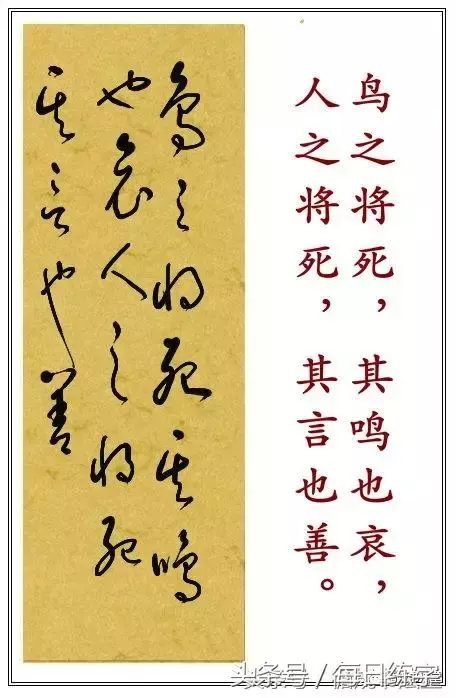 鸟之将死，其鸣也哀，
人之将死，其言也善。
鳥之将死其鳴
也哀人之将死
其言也善
头条号 / 每日练字